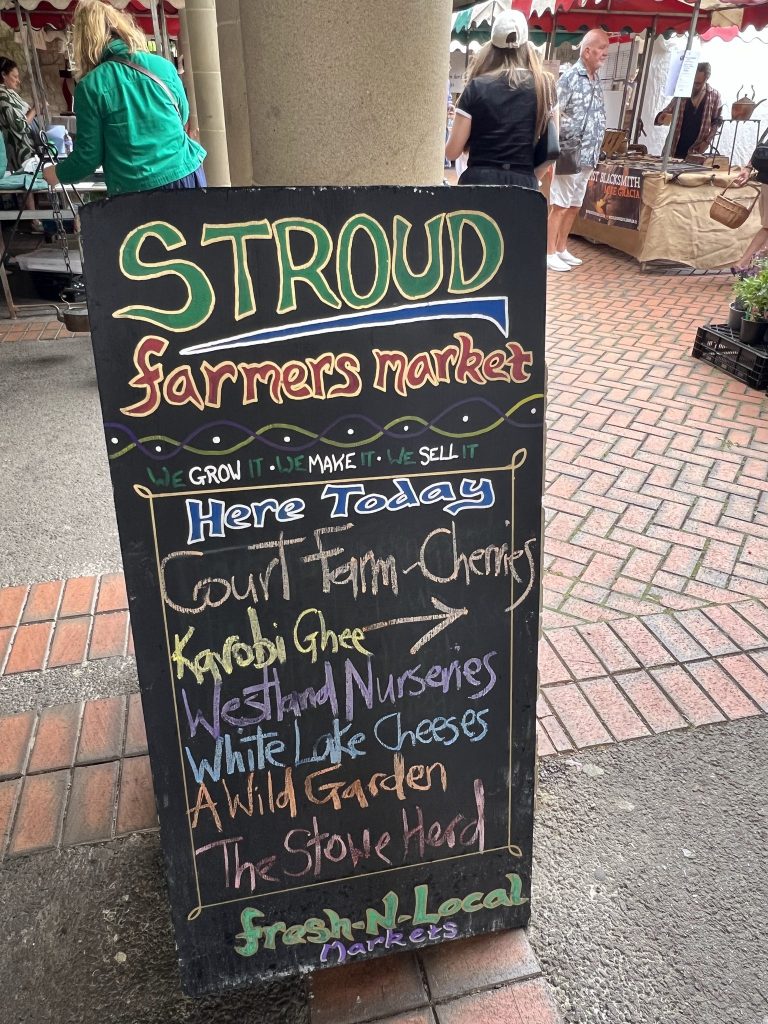 STROUD
farmers market
WE GROW IT · WE MAKE IT · WE SELL IT
Here Today
Court Farm - Cherries
Karobi Ghee →
Westland Nurseries
White Lake Cheeses
A Wild Garden
The Stowe Herd
fresh-N-Local
Markets
BLACKSMITH
GRACIA